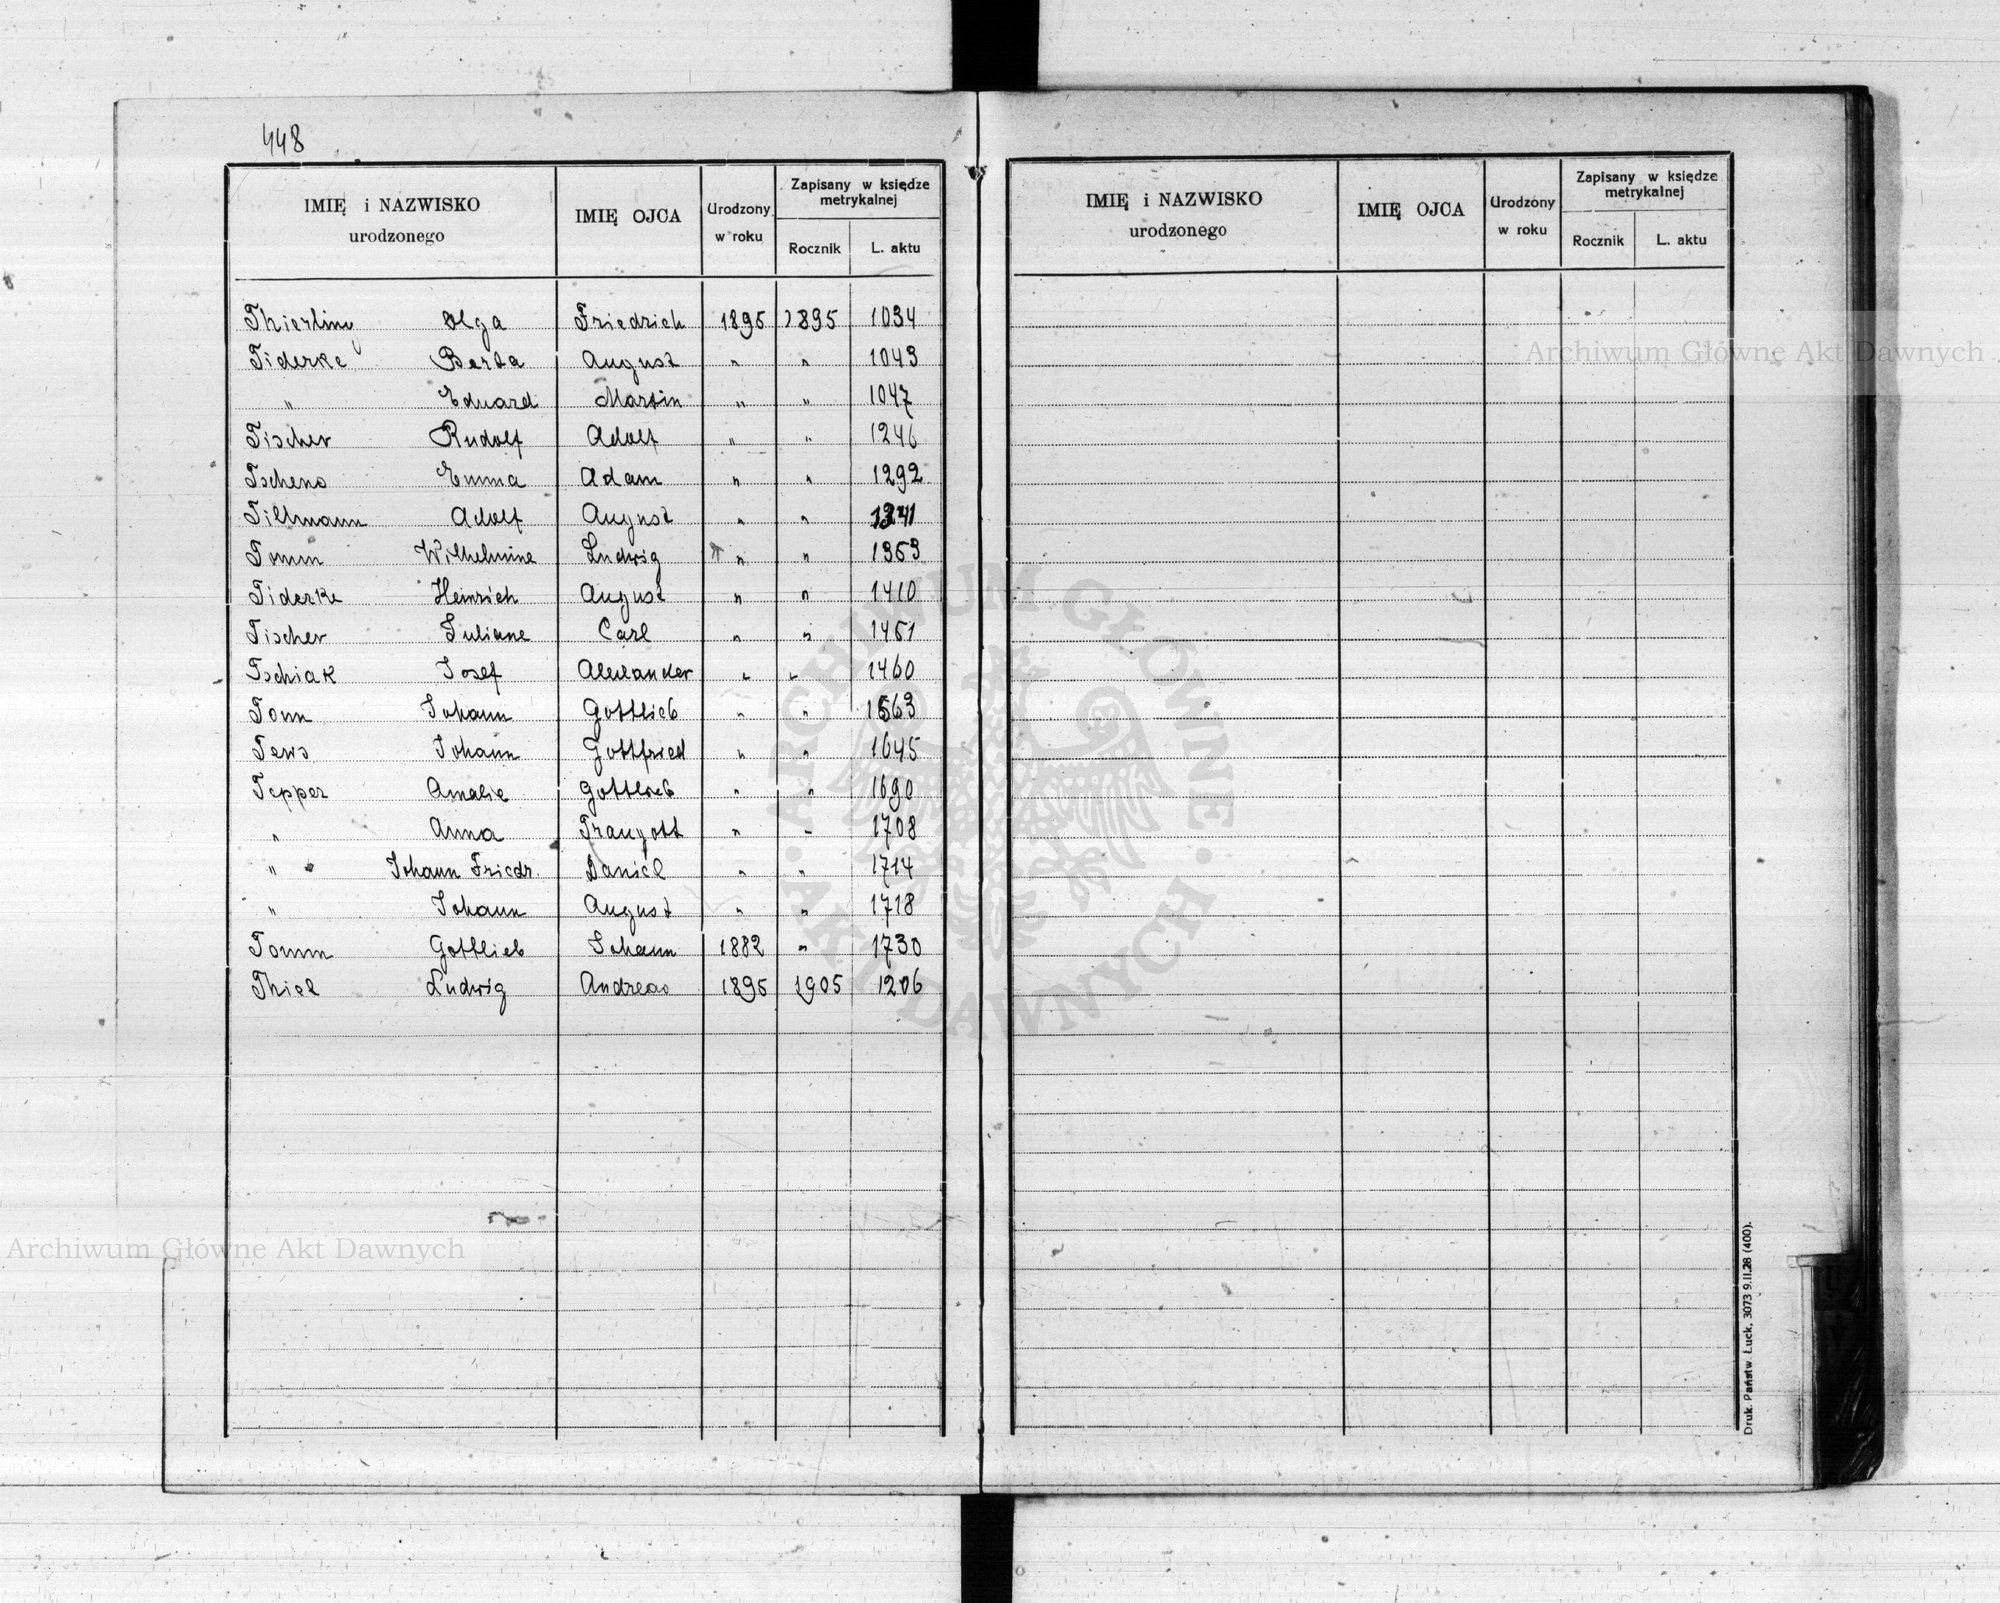 448
IMIĘ i NAZWISKO urodzonego IMIĘ OJCA Urodzony w roku Zapisany w księdze metrykalnej Rocznik L. aktu
Thierling Olga Friedrich 1895 1895 1034
Tiderke Berta August " " 1043
" Eduard Martin " " 1047
Tischer Rudolf Adolf " " 1246
Tschens Emma Adam " " 1292
Tillmann Adolf August " "
Tomm Wilhelmine Ludwig " " 1353
Tiderke Heinrich August " " 1410
Tischer Juliane Carl " " 1451
Tschiak Josef Alexander " " 1460
Tonn Johann Gottlieb " " 1563
Tews Johann Gottfried " " 1645
Tepper Amalie Gottlieb " " 1690
" Anna Traugott " " 1708
" Johann Friedr. Daniel " " 1714
" Johann August " " 1718
Tomm Gottlieb Johann 1882 " 1730
Thiel Ludwig Andreas 1895 1905 1206
IMIĘ i NAZWISKO urodzonego IMIĘ OJCA Urodzony w roku Zapisany w księdze metrykalnej Rocznik L. aktu
Druk. Państw. Łuck, 3073 9.II.28 (400).
Archiwum Główne Akt Dawnych
Archiwum Główne Akt Dawnych
ARCHIWUM GŁÓWNE · AKT DAWNYCH ·